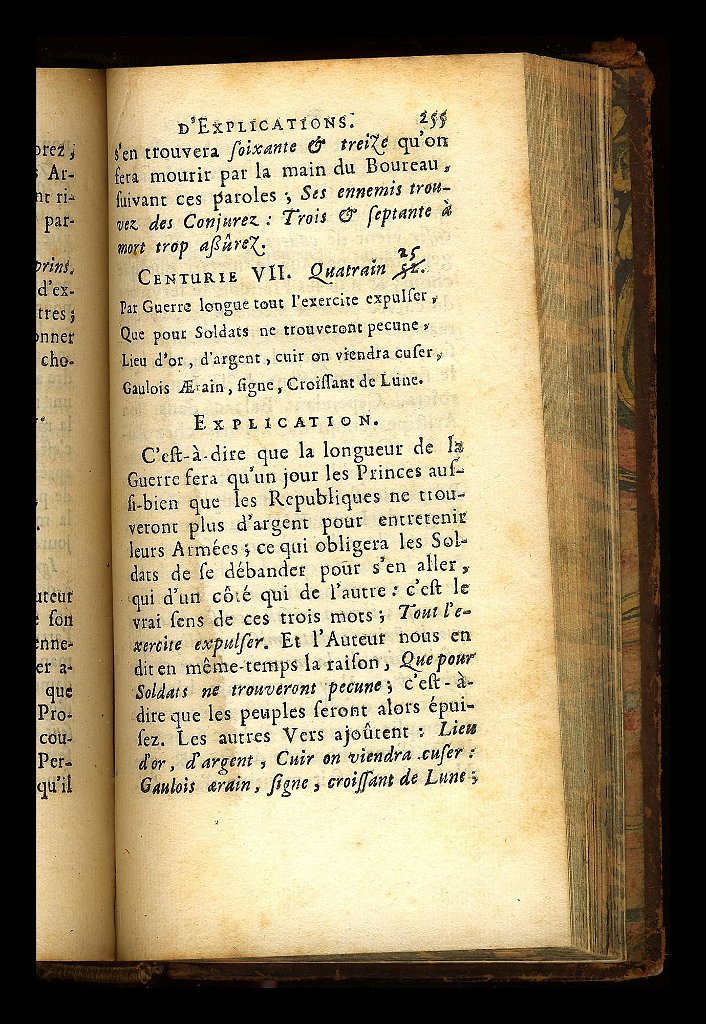 orez,
Ar-
nt ri-
par-
prins.
d'ex-
tres ;
onner
cho-
uteur
e ſon
enne-
er a-
que
Pro-
cou-
Per-
qu'il
D'EXPLICATIONS. 255
s'en trouvera ſoixante & treize qu'on
fera mourir par la main du Boureau,
ſuivant ces paroles ; Ses ennemis trou-
vez des Conjurez : Trois & ſeptante à
mort trop aßûrez.
25
CENTURIE VII. Quatrain 52.
Par Guerre longue tout l'exercite expulſer,
Que pour Soldats ne trouveront pecune,
Lieu d'or, d'argent, cuir on viendra cuſer,
Gaulois Ærain, ſigne, Croiſſant de Lune.
EXPLICATION.
C'eſt-à-dire que la longueur de la
Guerre fera qu'un jour les Princes auſ-
ſi-bien que les Republiques ne trou-
veront plus d'argent pour entretenir
leurs Armées ; ce qui obligera les Sol-
dats de ſe débander pour s'en aller,
qui d'un côté qui de l'autre : c'eſt le
vrai ſens de ces trois mots ; Tout l'e-
xercite expulſer. Et l'Auteur nous en
dit en même-temps la raiſon, Que pour
Soldats ne trouveront pecune ; c'eſt-à-
dire que les peuples ſeront alors épui-
ſez. Les autres Vers ajoûtent : Lieu
d'or, d'argent, Cuir on viendra cuſer :
Gaulois ærain, ſigne, croiſſant de Lune ;